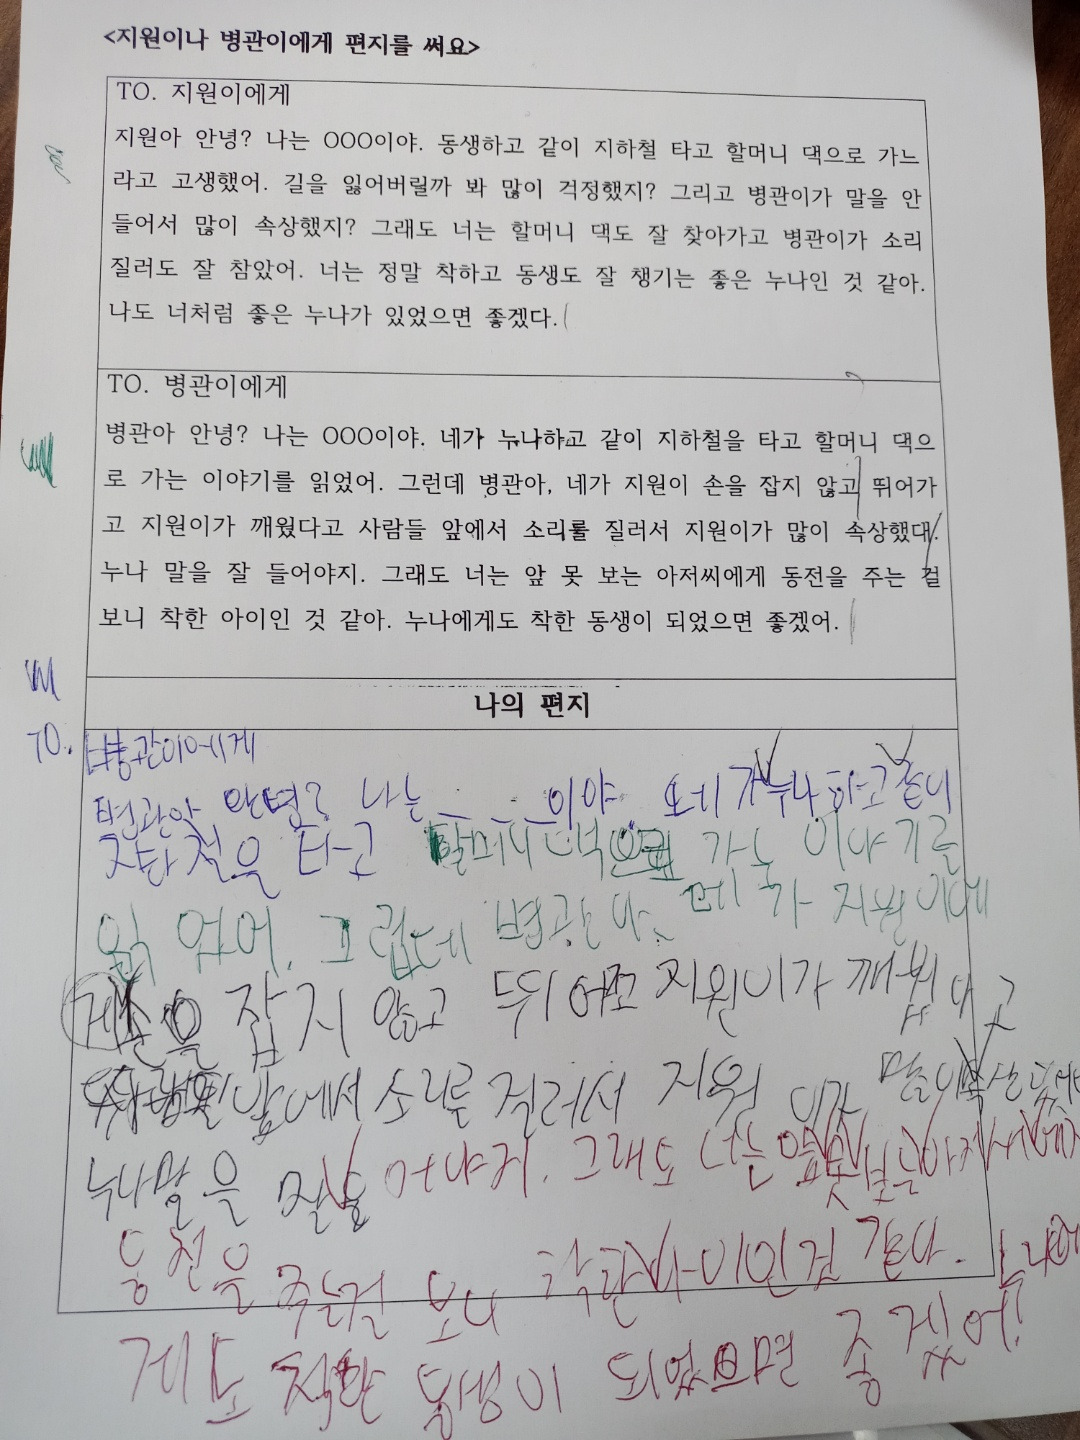 <지원이나 병관이에게 편지를 써요>
TO. 지원이에게
지원아 안녕? 나는 OOO이야. 동생하고 같이 지하철 타고 할머니 댁으로 가느
라고 고생했어. 길을 잃어버릴까 봐 많이 걱정했지? 그리고 병관이가 말을 안
들어서 많이 속상했지? 그래도 너는 할머니 댁도 잘 찾아가고 병관이가 소리
질러도 잘 참았어. 너는 정말 착하고 동생도 잘 챙기는 좋은 누나인 것 같아.
나도 너처럼 좋은 누나가 있었으면 좋겠다.
TO. 병관이에게
병관아 안녕? 나는 OOO이야. 네가 누나하고 같이 지하철을 타고 할머니 댁으
로 가는 이야기를 읽었어. 그런데 병관아, 네가 지원이 손을 잡지 않고 뛰어가
고 지원이가 깨웠다고 사람들 앞에서 소리를 질러서 지원이가 많이 속상했대.
누나 말을 잘 들어야지. 그래도 너는 앞 못 보는 아저씨에게 동전을 주는 걸
보니 착한 아이인 것 같아. 누나에게도 착한 동생이 되었으면 좋겠어.
나의 편지
TO. 병관이에게
병관아 안녕? 나는 _ _ _이야. 네가 누나하고 같이
철을 타고 할머니 댁으로 가는 이야기를
읽었어. 그런데 병관아, 네가
손을 잡지 않고 지원이가
앞에서 소리를 질러서 지원이가
누나말을 잘 어야지. 그래도 너는 앞못보는아저씨에게
동전을 주는걸 보니 착한아이인것 같다. 누나에
게도 착한 동생이 되었으면 좋겠어!